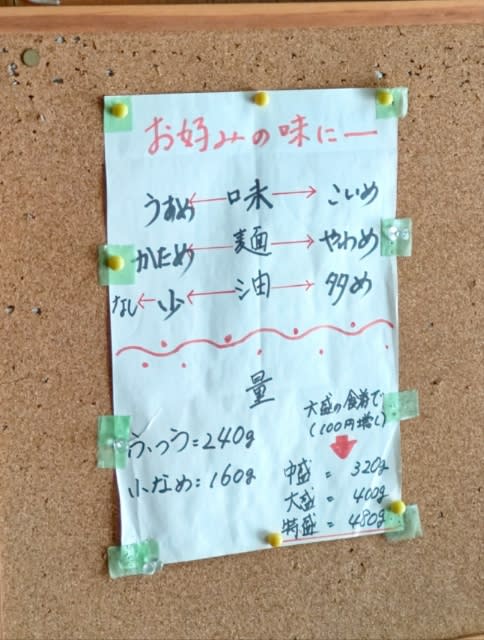 お好みの味にー
うすめ ← 味 → こいめ
かため ← 麺 → やわめ
なし ← 少 ← 油 → 多め
量
ふつう=240g
小なめ:160g
大盛の食券で
(100円増し)
中盛 = 320g
大盛 = 400g
特盛 = 480g